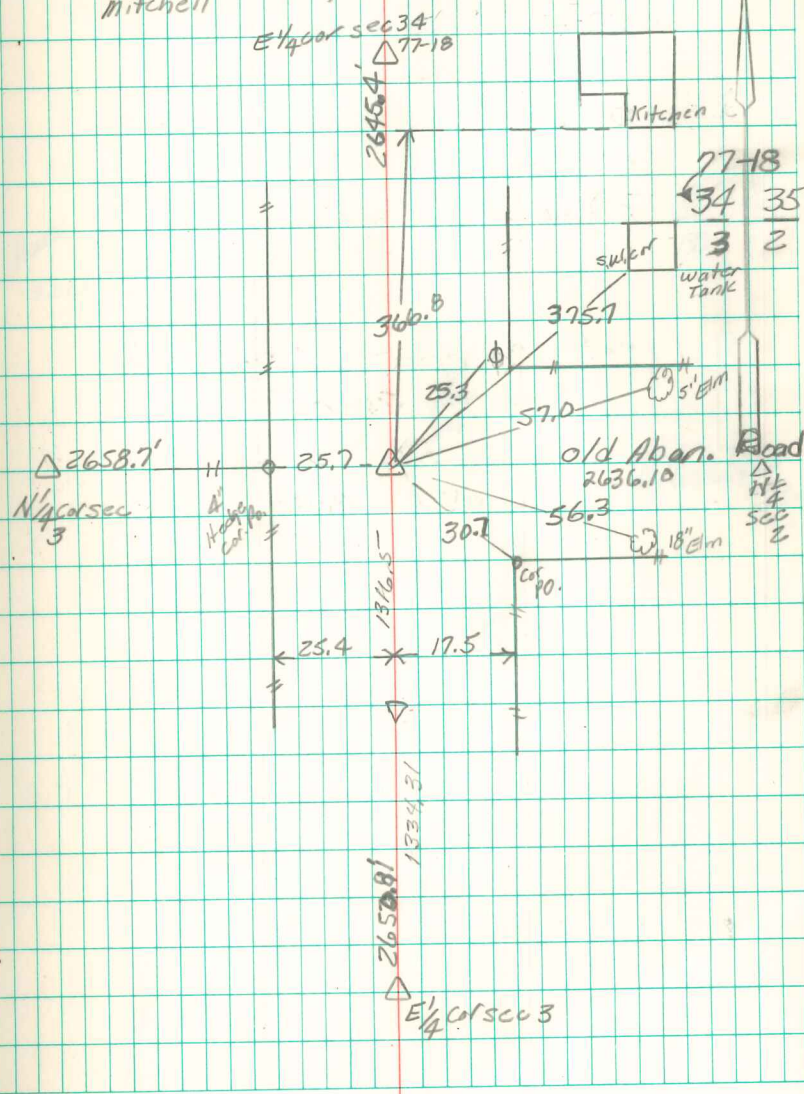 Mitchell
E 1/4 cor sec 34
77-18
2645.4'
Kitchen
77-18
34 35
3 2
s.w. cor
water
Tank
366.8
375.7
25.3
5' Elm
57.0
2658.7'
25.7
old Aban. Road
2636.10
N 1/4 cor sec
3
4'
Hedge
cor. po.
N 1/4
sec
2
56.3
30.7
18" Elm
cor
po.
1316.5
25.4
17.5
1334.31
2650.81'
E 1/4 cor sec 3